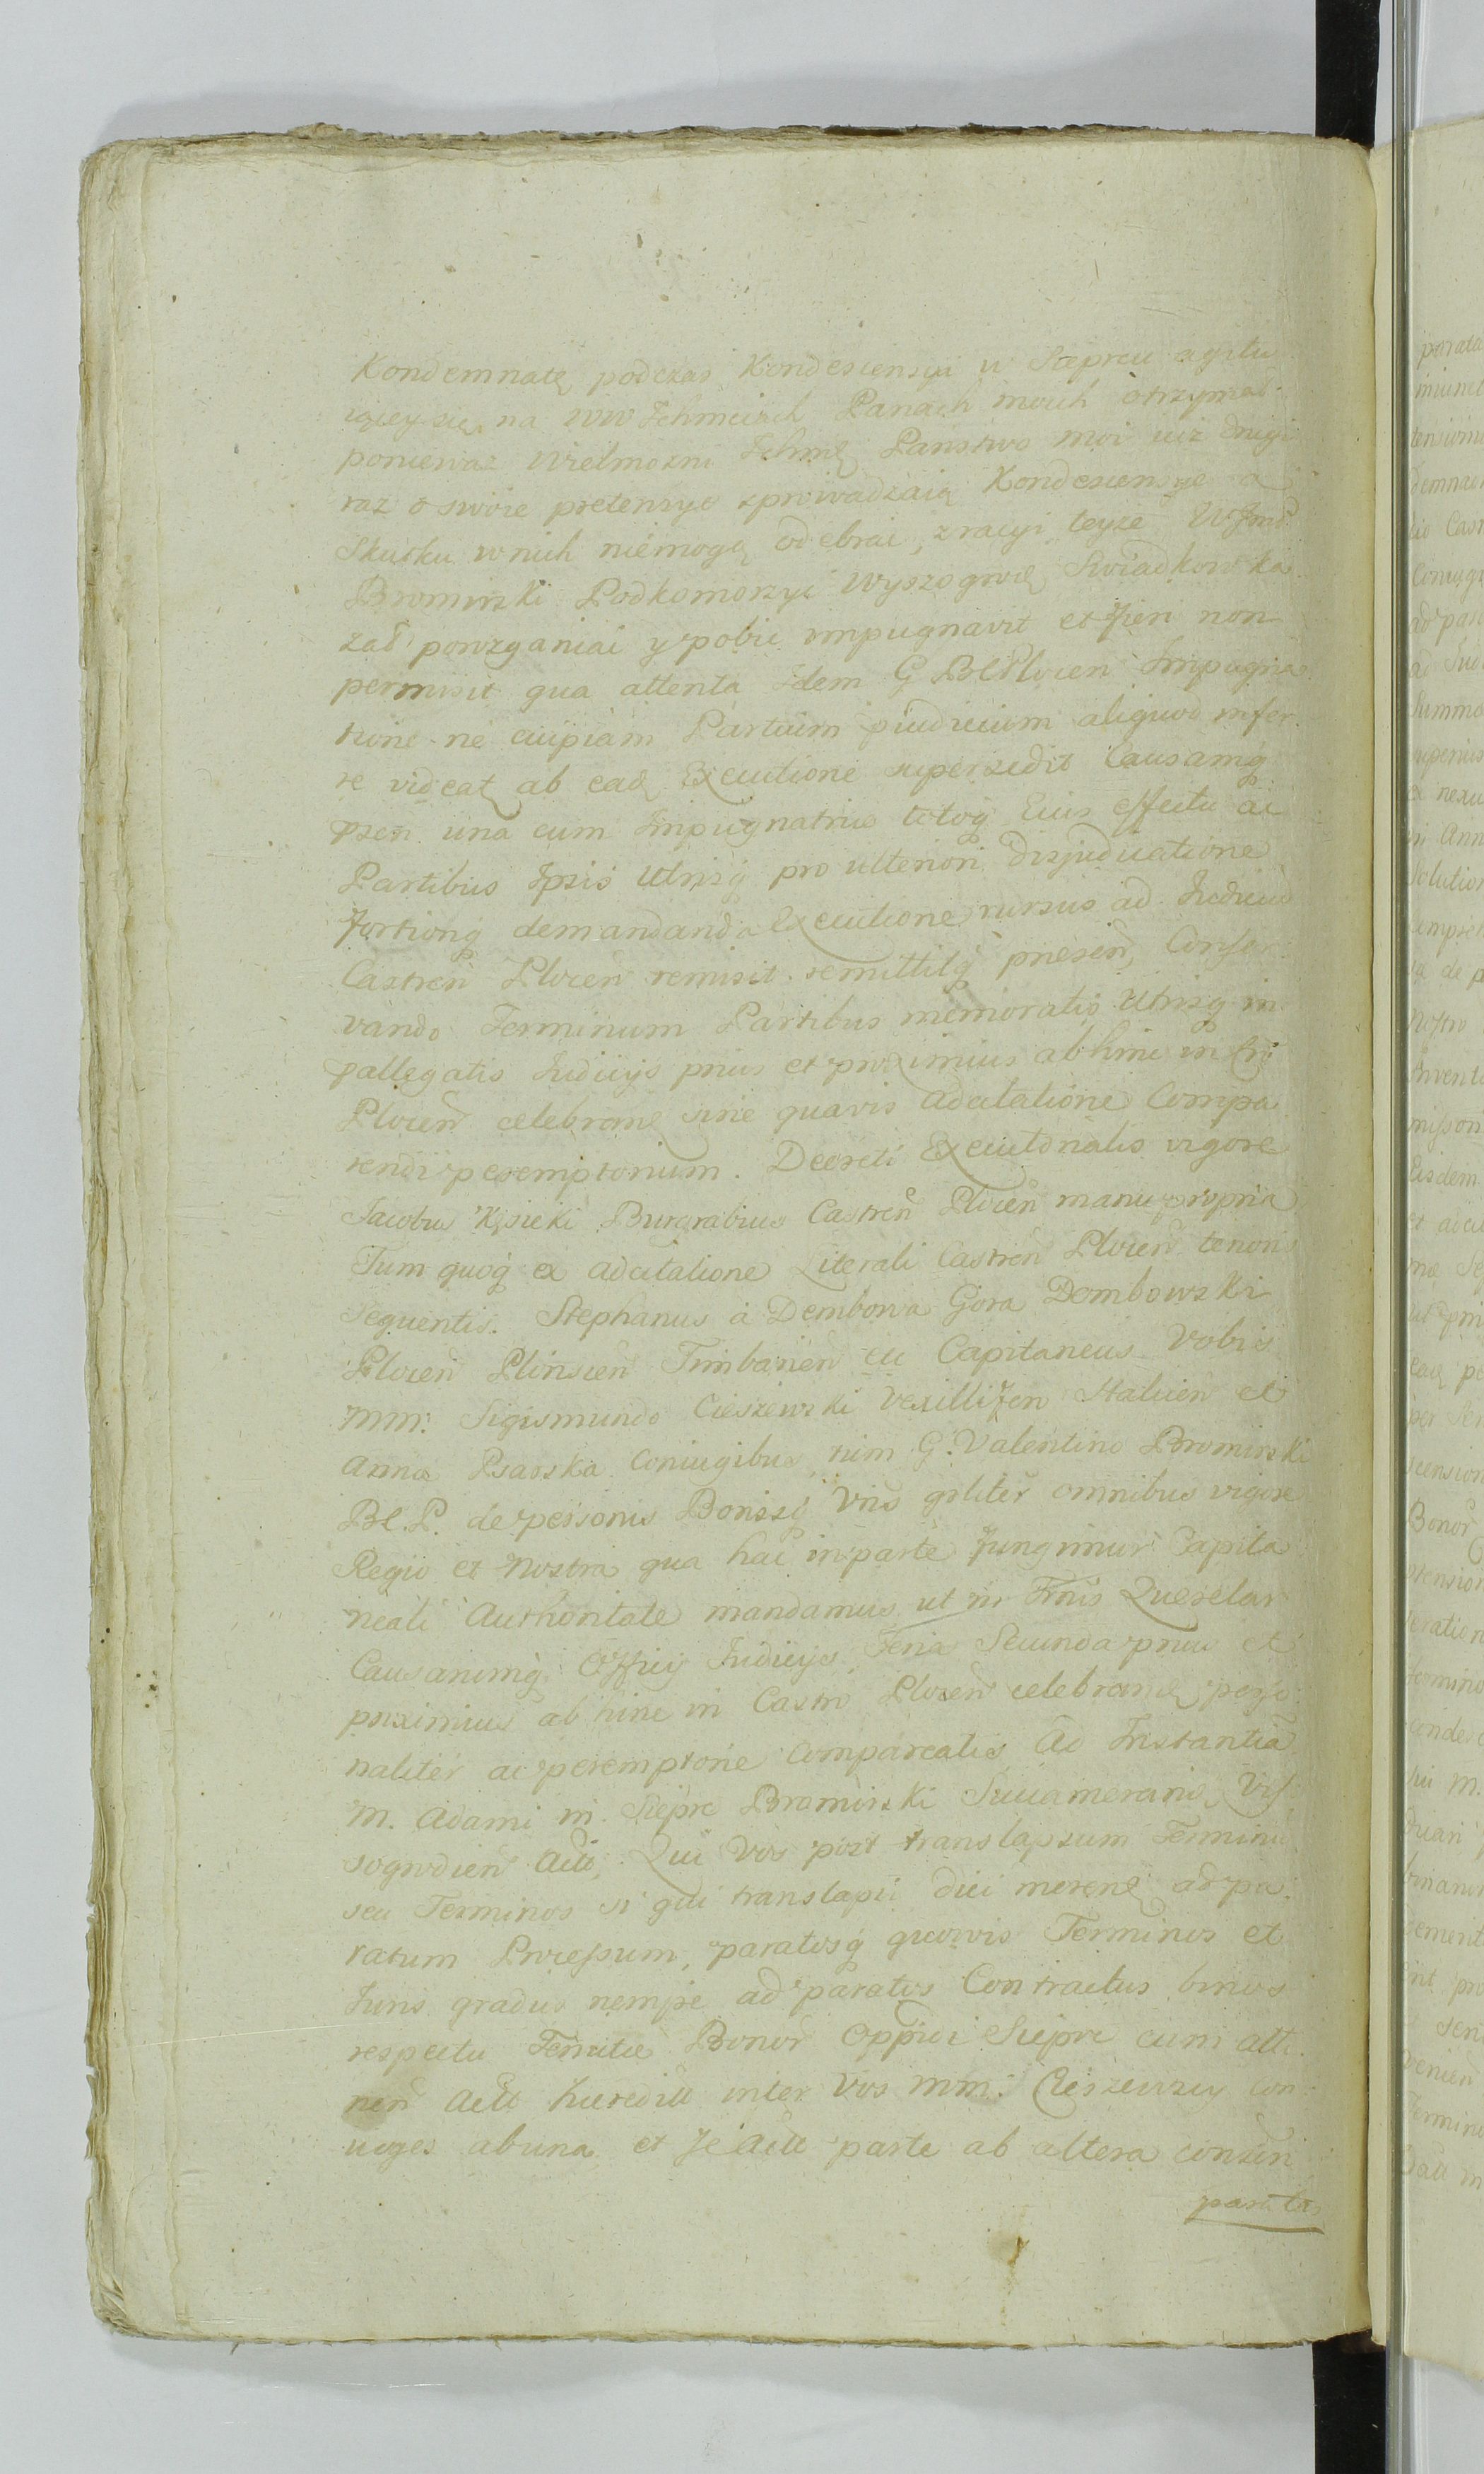 Kondemnatę podczas Kondescensyi w Sieprcu agitu
iącey się, na WW Jchmciach Panach moich otrzymał
ponieważ Wielmożni Jchmę Państwo moi iuż drugi
raz o swoie pretensye sprowadzaią Kondescensye a
Skutku w nich niemogą odebrac, z racyi teyże W Jmć
Bromirski Podkomorzyc Wyszogrodę Swiadkow ka
zał powzganiac y pobic impugnavit et fieri non
permisit qua attenta Idem G BCPlocen Impugna
tione ne cuipiam Partium pjudicium aliquod infer
re videat ab eadę Executione supersedit Causamq̃
psen una cum Impugnatrice totoq̃ Eius effectu ac
Partibus Ipsis Utrisq̃ pro ulteriori disjudicatione
fortioriq̃ demandanda Executione rursus ad Judiciu
Castren Plocen remisit remittitq̃ presen, Conser
vando Terminum Partibus memoratis Utrisq̃ in
pallegatis Judicijs prius et proximius ab hinc in Cro
Plocen celebrane sine quavis adcitatione Compa
rendi peremptorium. Decreti Executorialis vigore
Jacobus Kęsicki Burgrabius Castren Plocen manu propria
Tum quoq̃ ex adcitatione Literali Castren Plocen tenoris
Sequentis. Stephanus à Dembowa Gora Dembowski
Plocen Plinscen Timbarien etc Capitaneus Vobis
MM: Sigismundo Cieszewski Vexillifen et
Anna Psarska Coniugibus, tum G. Valentino Bromirski
BC.P. de personis Bonisq̃ Vris gnliter omnibus vigore
Regio et Nostra qua hac in parte fungimur Capita
neali Authoritate mandamus ut in Tmis Querelar
Causarumq̃ Officij Judicijs Feria Secunda prius et
proximius ab hinc in Castro Plocen celebrane perso
naliter ac peremptorie Compareatis Ad Instantia
M. Adami in Sieprc Bromirski Succamerarid, Vis
sogrodien Acto, Qui Vos post translapsum Terminu
seu Terminos si qui translapsi dici merene ad pa
ratum Processum, paratosq̃ quosvis Terminos et
Juris gradus nempe ad paratos Contractus binos
respectu Tenutæ Bonor Oppidi Sieprc cum atti
nen Acto hæredit inter Vos MM: Cieszewscy Con
iuges ab una et Se Acto parte ab altera consen
paratos